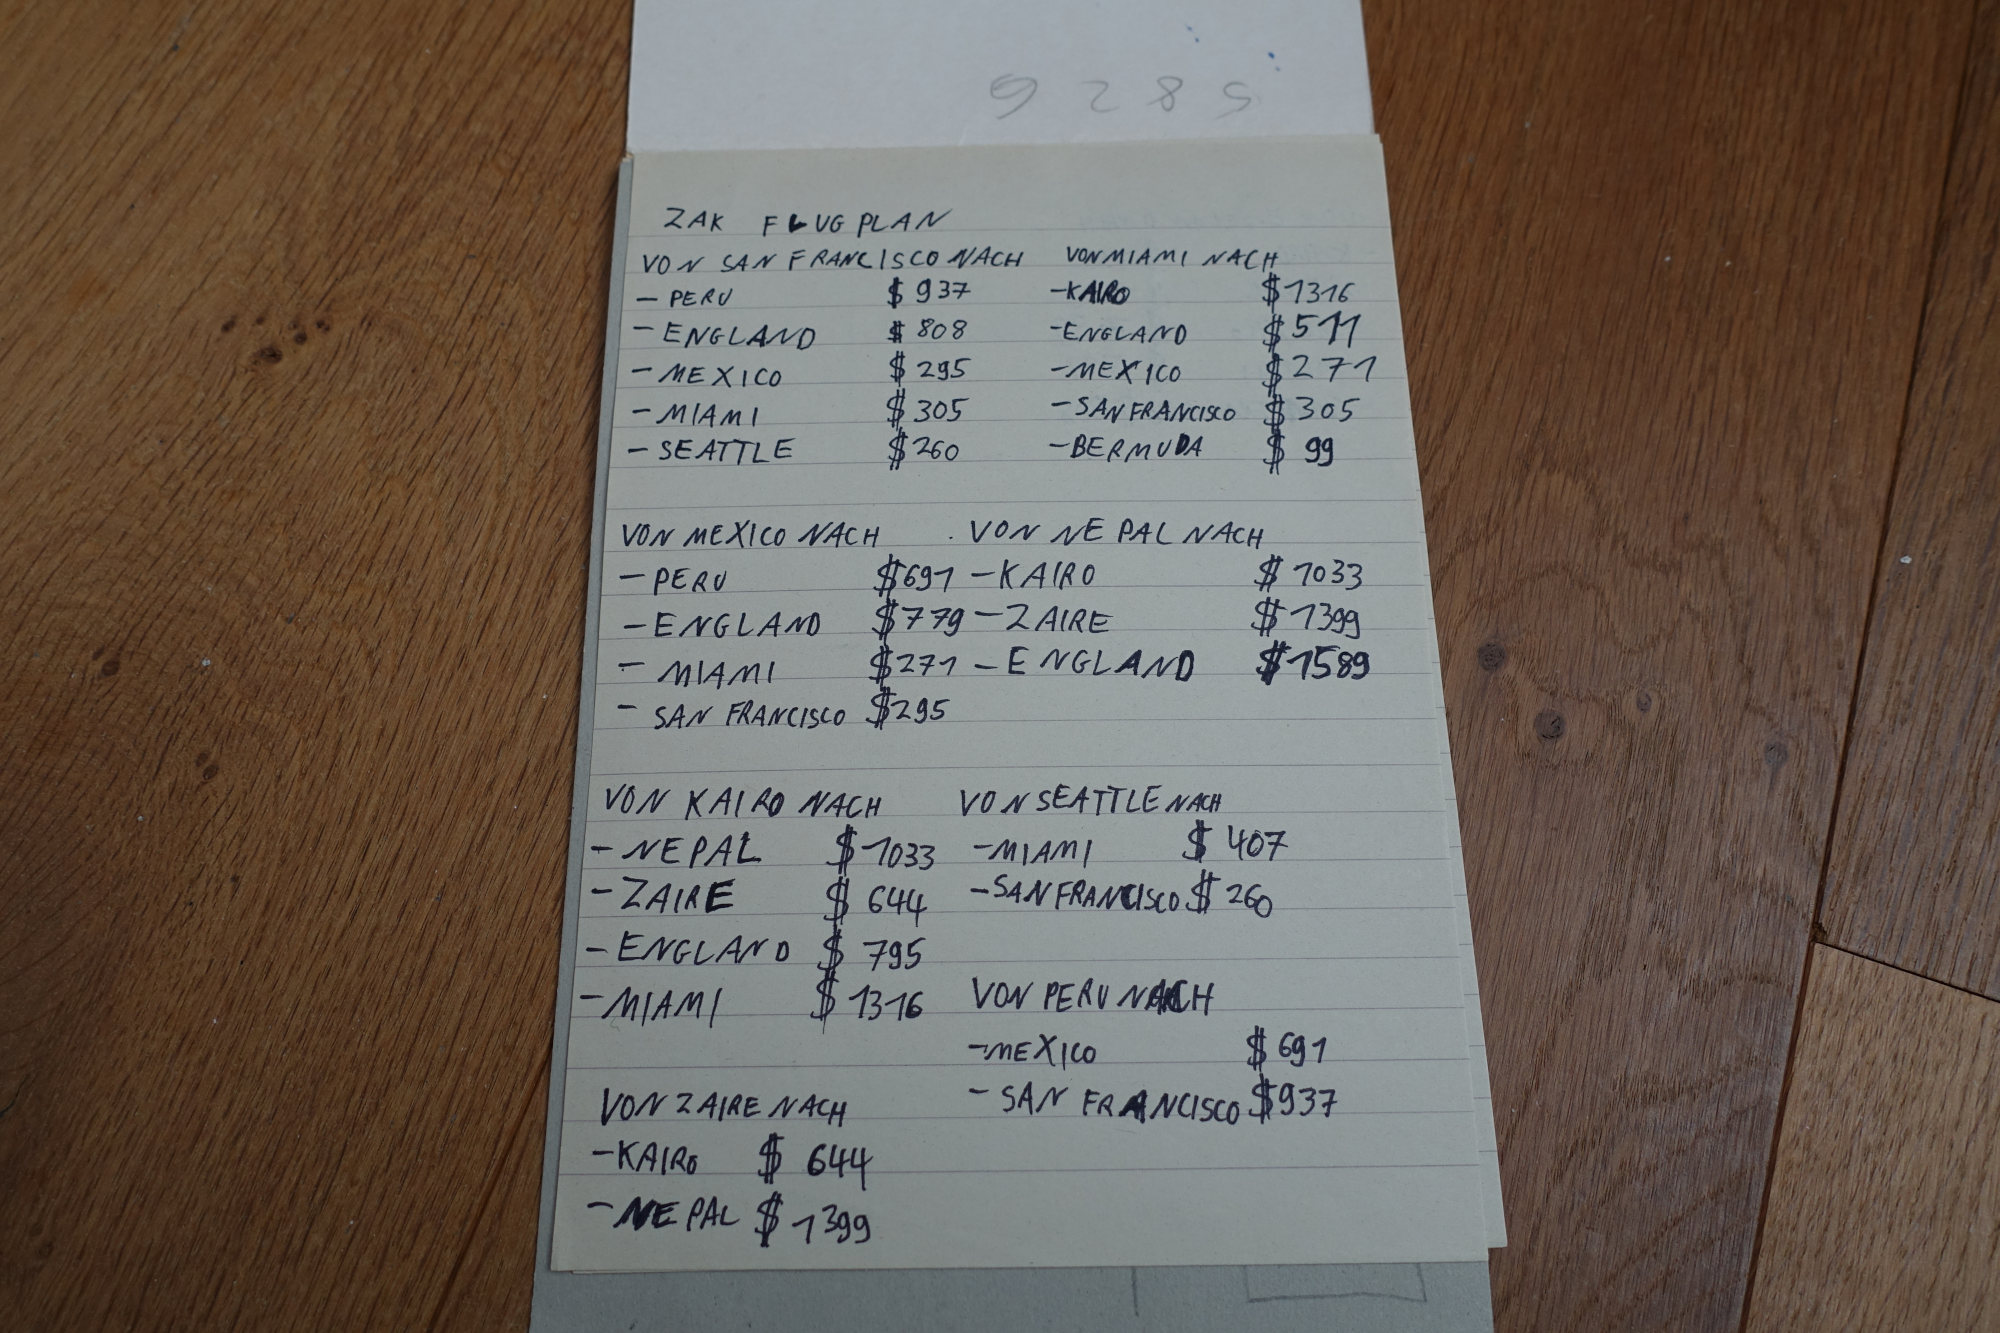 9285
ZAK FLUGPLAN
VON SAN FRANCISCO NACH
- PERU $ 937
- ENGLAND $ 808
- MEXICO $ 295
- MIAMI $ 305
- SEATTLE $ 260
VON MIAMI NACH
- KAIRO $ 1316
- ENGLAND $ 511
- MEXICO $ 271
- SAN FRANCISCO $ 305
- BERMUDA $ 99
VON MEXICO NACH
- PERU $ 691
- ENGLAND $ 779
- MIAMI $ 271
- SAN FRANCISCO $ 295
VON NEPAL NACH
- KAIRO $ 1033
- ZAIRE $ 1399
- ENGLAND $ 1589
VON KAIRO NACH
- NEPAL $ 1033
- ZAIRE $ 644
- ENGLAND $ 795
- MIAMI $ 1316
VON SEATTLE NACH
- MIAMI $ 407
- SAN FRANCISCO $ 260
VON PERU NACH
- MEXICO $ 691
- SAN FRANCISCO $ 937
VON ZAIRE NACH
- KAIRO $ 644
- NEPAL $ 1399